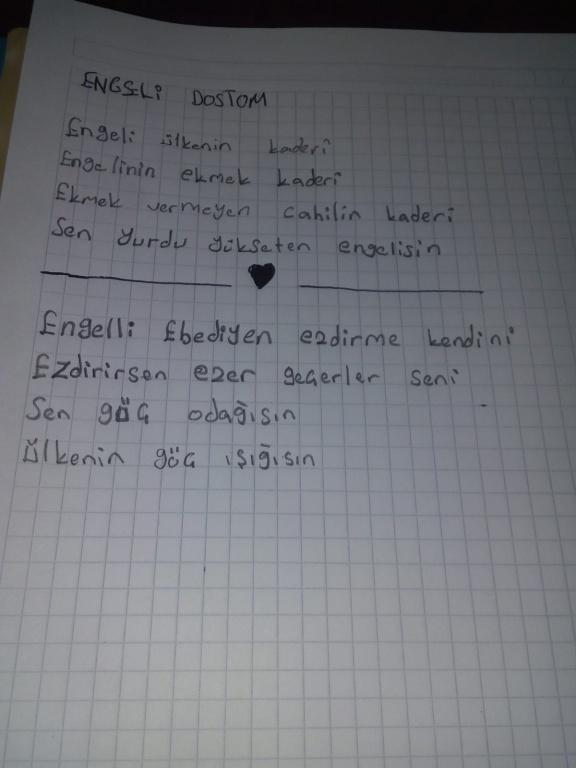 ENGELİ DOSTOM
Engeli ülkenin kaderi
Engelinin ekmek kaderi
Ekmek vermeyen cahilin kaderi
Sen yurdu yükseten engelisin
Engelli Ebediyen ezdirme kendini
Ezdirirsen ezer geçerler seni
Sen güç odağısın
ülkenin güç ışığısın